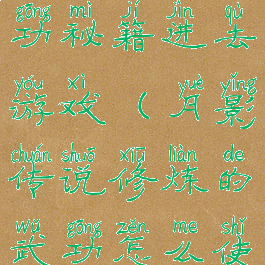 gōng mì jí jìn qù
功秘籍进去
yóu xì yuè yǐng
游戏(月影
chuán shuō xiū liàn de
传说修炼的
wǔ gōng zěn me shǐ
武功怎么使